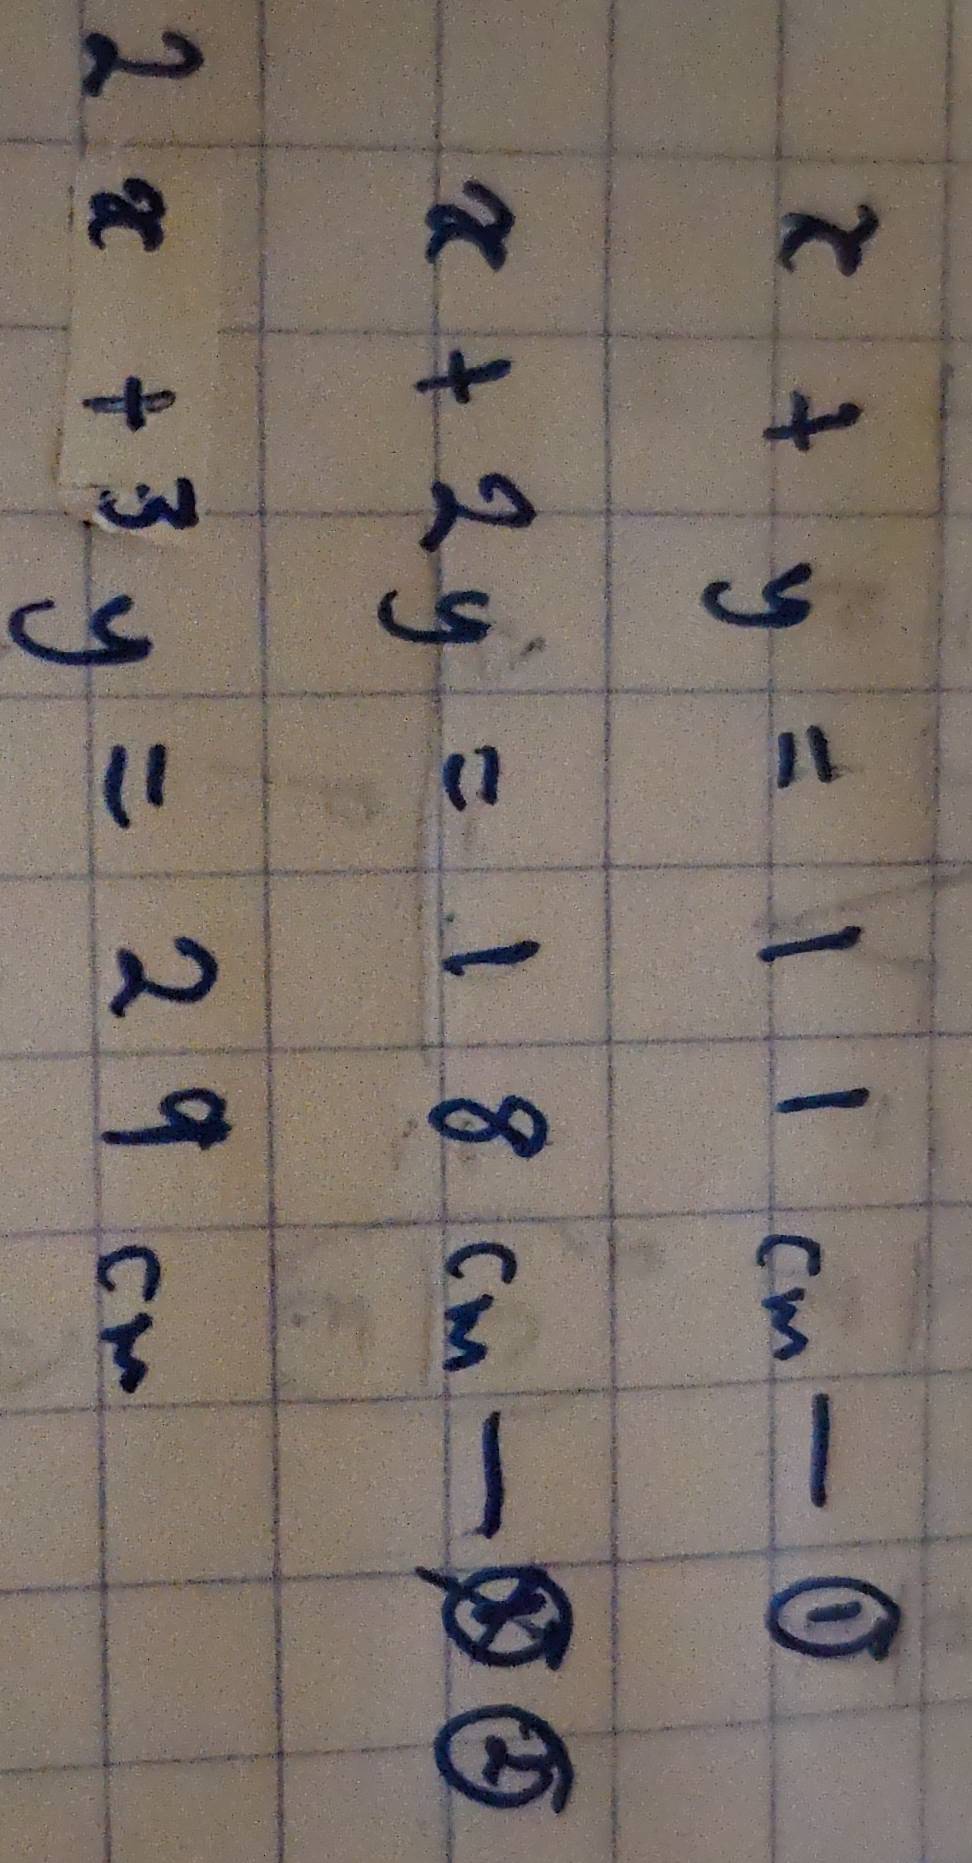 x + y = 11 cm — ①
x + 2y = 18 cm — ②
2x + 3y = 29 cm